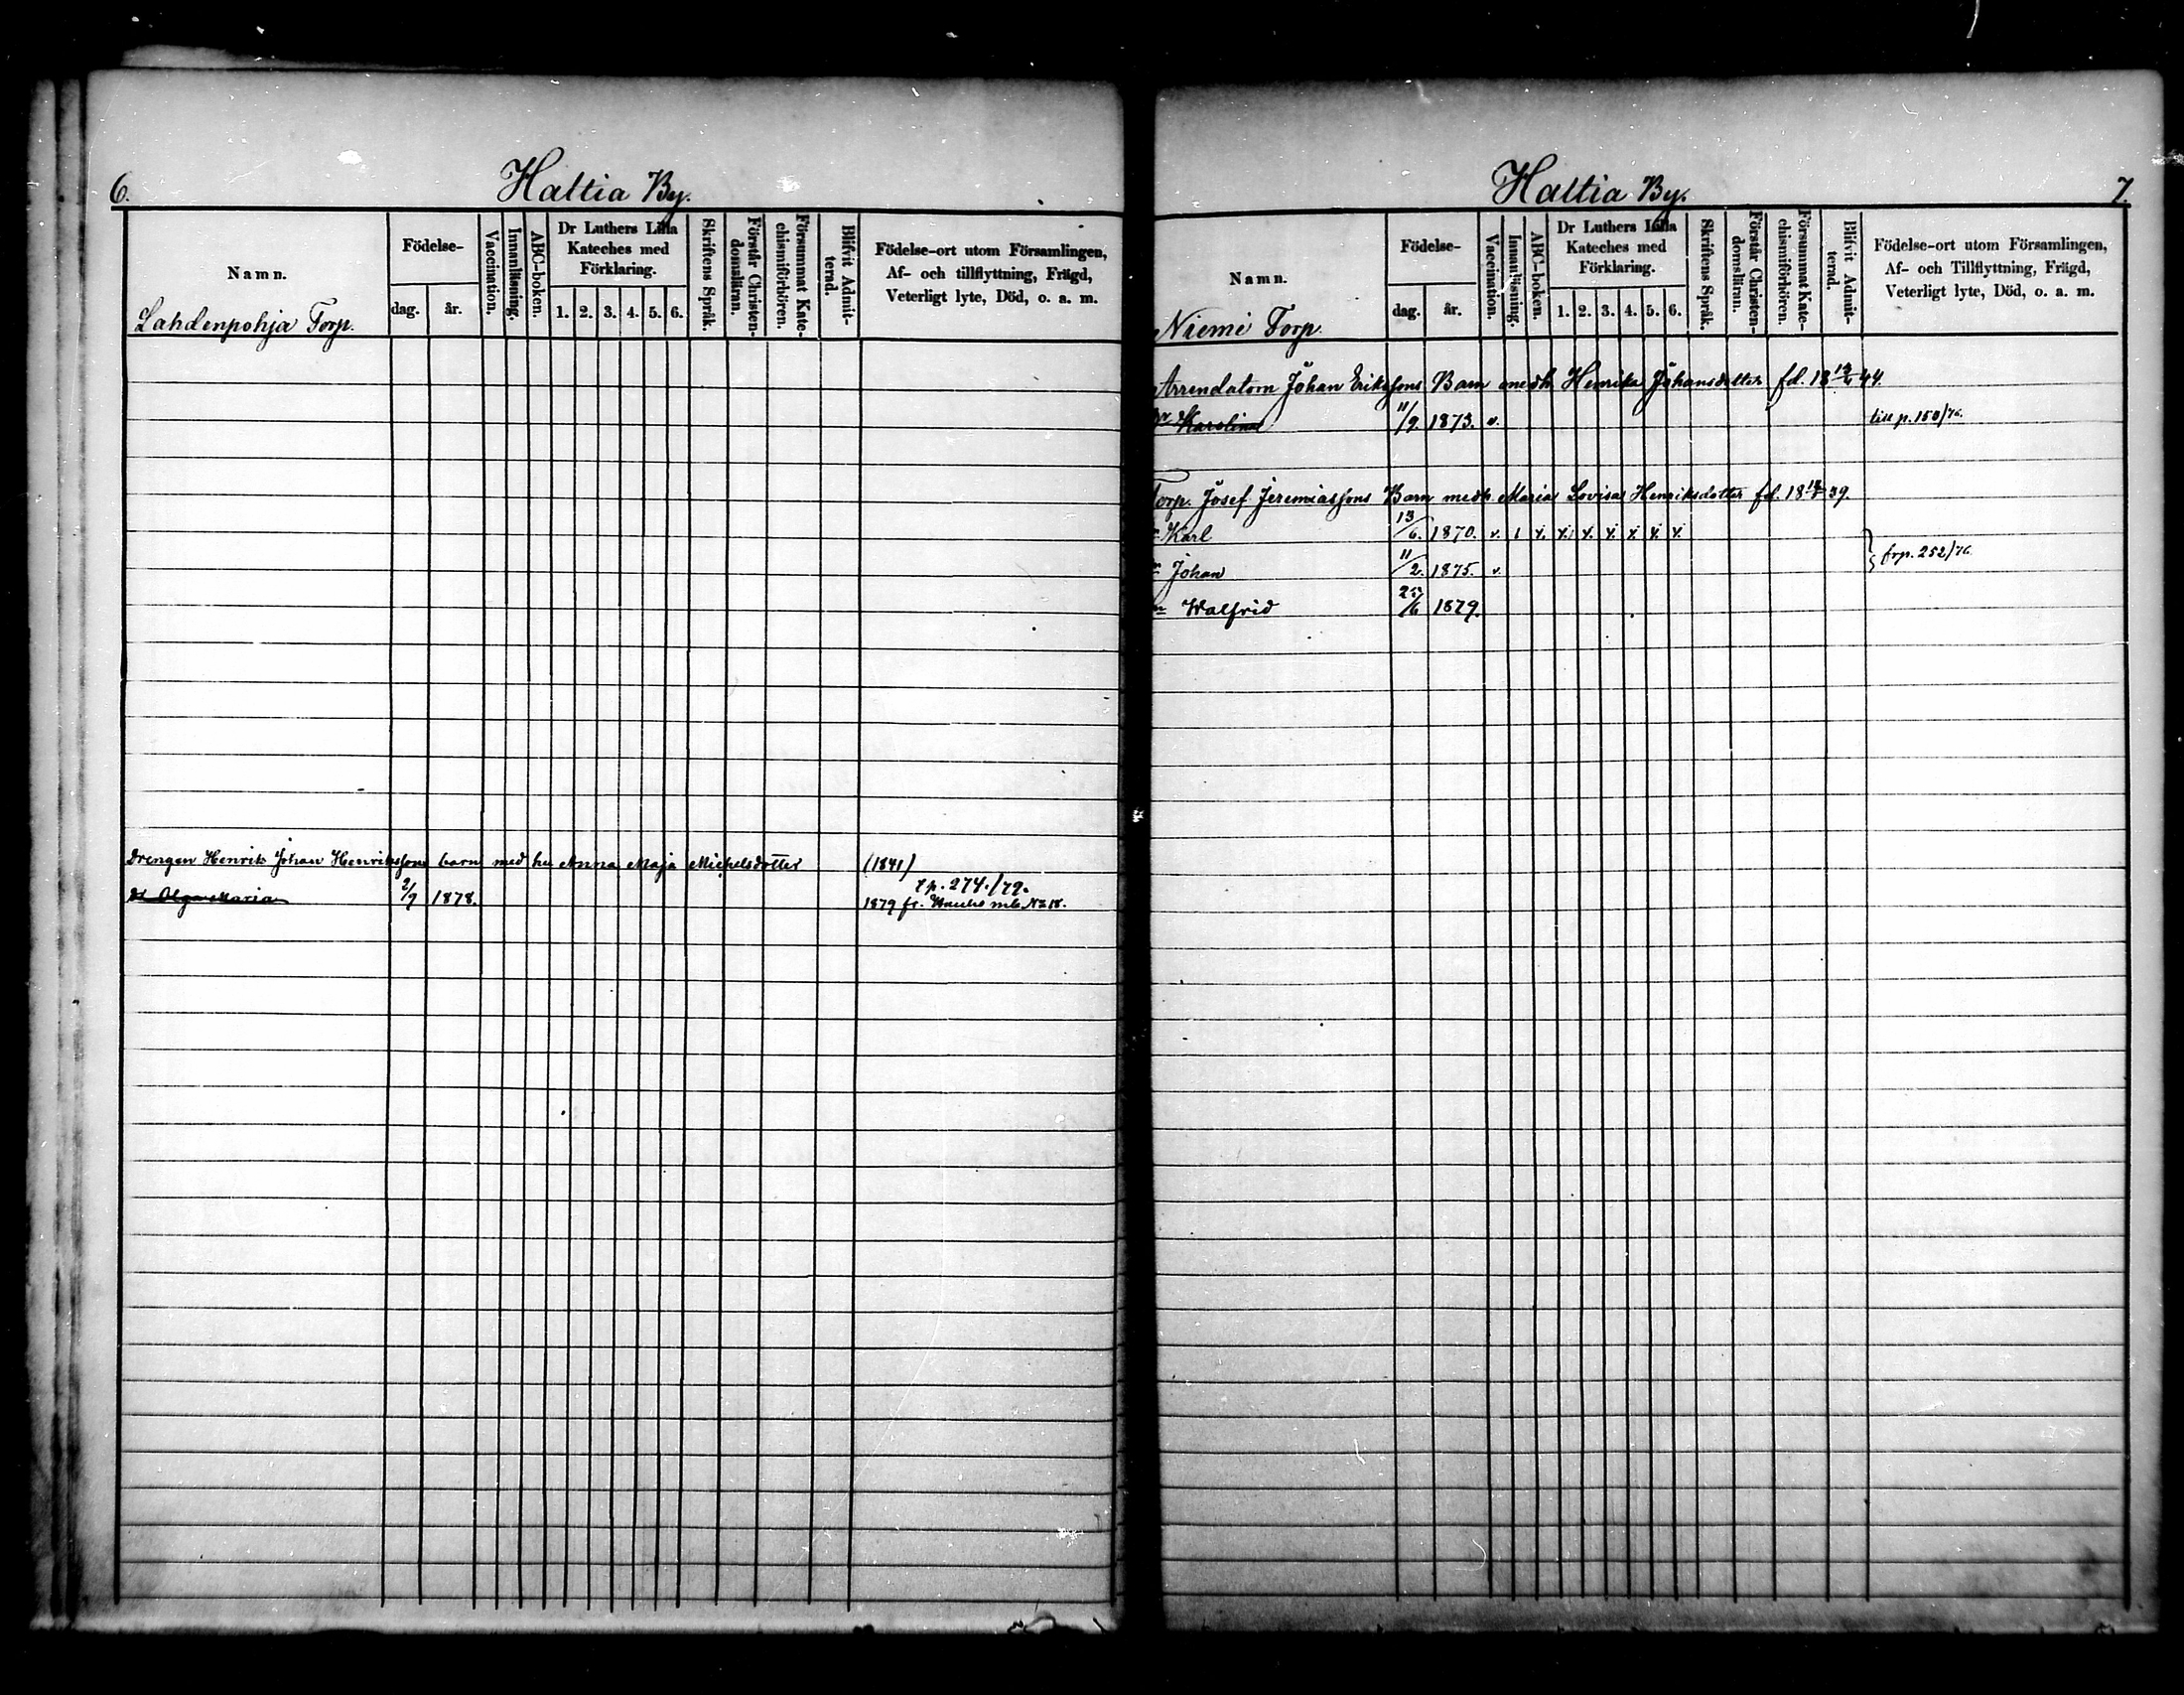 6.
Haltia By.
Namn.
Födelse-
dag.
år.
Vaccination.
Innanläsning.
ABC-boken.
Dr Luthers Lilla
Kateches med
Förklaring.
1. 2. 3. 4. 5. 6.
Skriftens Språk.
Förstår Christen-
domsläran.
Försummat Kate-
chismiförhören.
Blifvit Admit-
terad.
Födelse-ort utom Församlingen,
Af- och tillflyttning, Frägd,
Veterligt lyte, Död, o. a. m.
Lahdenpohja Torp.
Drengen Henrik Johan Henrikssons barn med hu Anna Maja Michelsdotter (1841)
tp. 274./79.
Dr Olga Maria 2/9 1878. 1879 fr. mb. No 18.
7.
Haltia By.
Namn.
Födelse-
dag.
år.
Vaccination.
Innanläsning.
ABC-boken.
Dr Luthers Lilla
Kateches med
Förklaring.
1. 2. 3. 4. 5. 6.
Skriftens Språk.
Förstår Christen-
domsläran.
Försummat Kate-
chismiförhören.
Blifvit Admit-
terad.
Födelse-ort utom Församlingen,
Af- och Tillflyttning, Frägd,
Veterligt lyte, Död, o. a. m.
Niemi Torp.
Arrendatorn Johan Erikssons Barn medh. Henrika Johansdotter fd. 44.
Karolina 11/9 1873. v. till p. 150/76.
Torp. Josef Jeremiassons Barn medh. Maria Lovisa Henriksdotter fd. 39.
Karl 13/6. 1870. v.
Johan 11/2. 1875. v. frp. 252/76
Walfrid 25/6 1879.